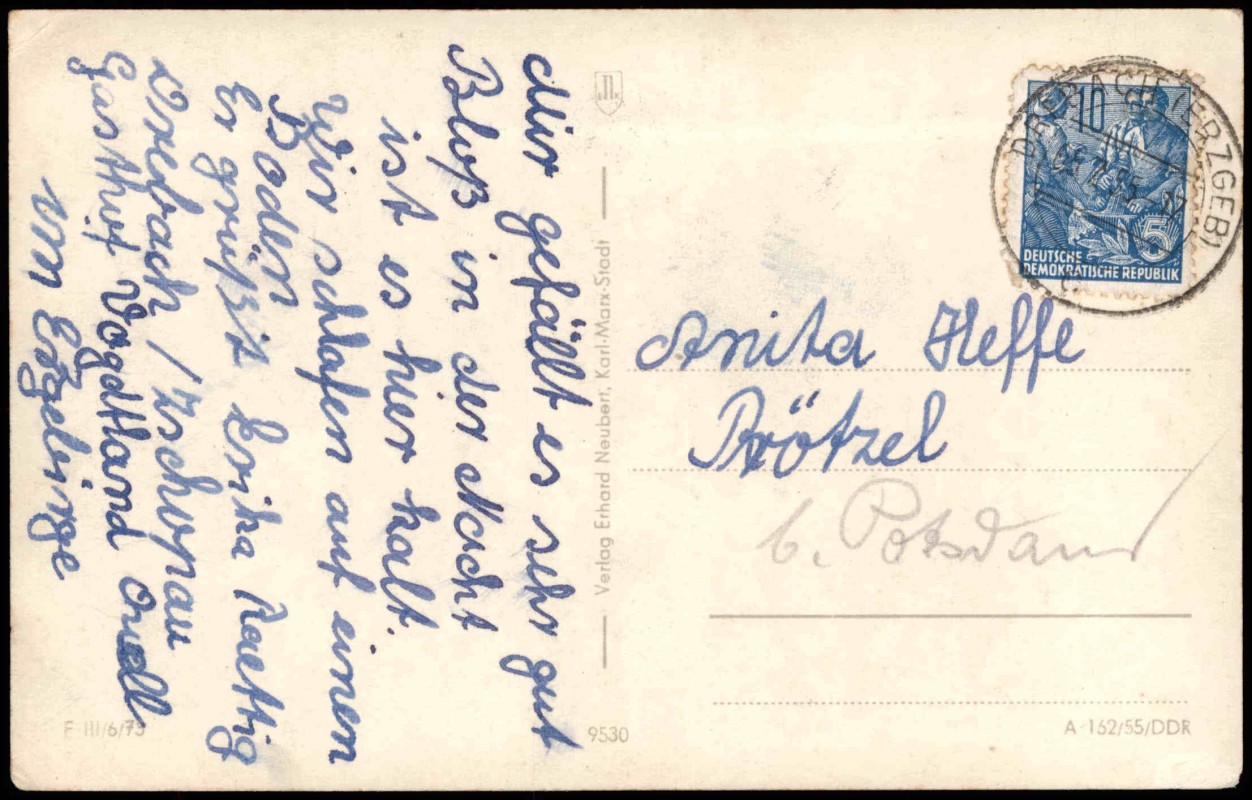 Mir gefällt es sehr gut
Bloß in der Nacht
ist es hier kalt.
Wir schlafen auf einen
Boden
Er grüßt Erika Raettig
Drebach / Zschopau
Gasthof Vogdtland
um Ezgebirge
Verlag Erhard Neubert, Karl-Marx-Stadt
10
5
DEUTSCHE
DEMOKRATISCHE REPUBLIK
DREBACH (ERZGEB)
Anita Heffe
Prötzel
b. Potsdam
F III/6/73
9530
A 162/55/DDR